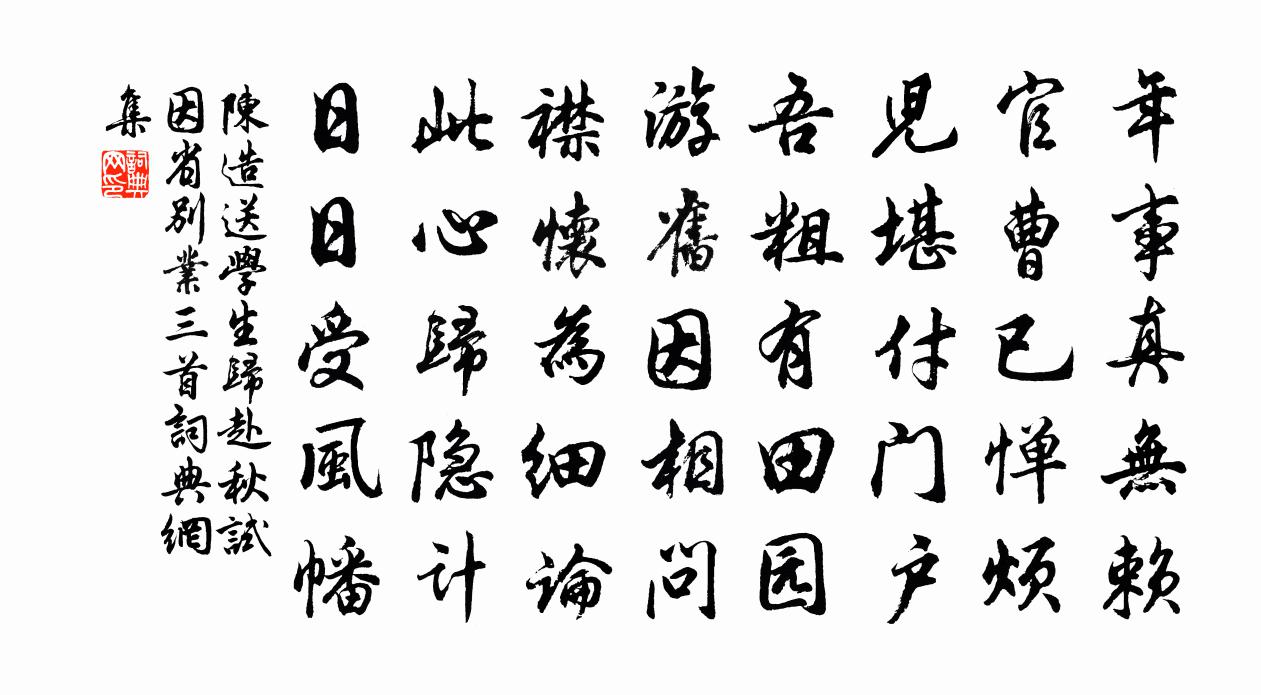 年事真無賴
官曹已惮烦
児堪付门户
吾粗有田园
游舊因相问
襟懷為细論
此心歸隐计
日日受風幡
陳造送學生歸赴秋試
因省别業三首詞典網
集
詞典网印